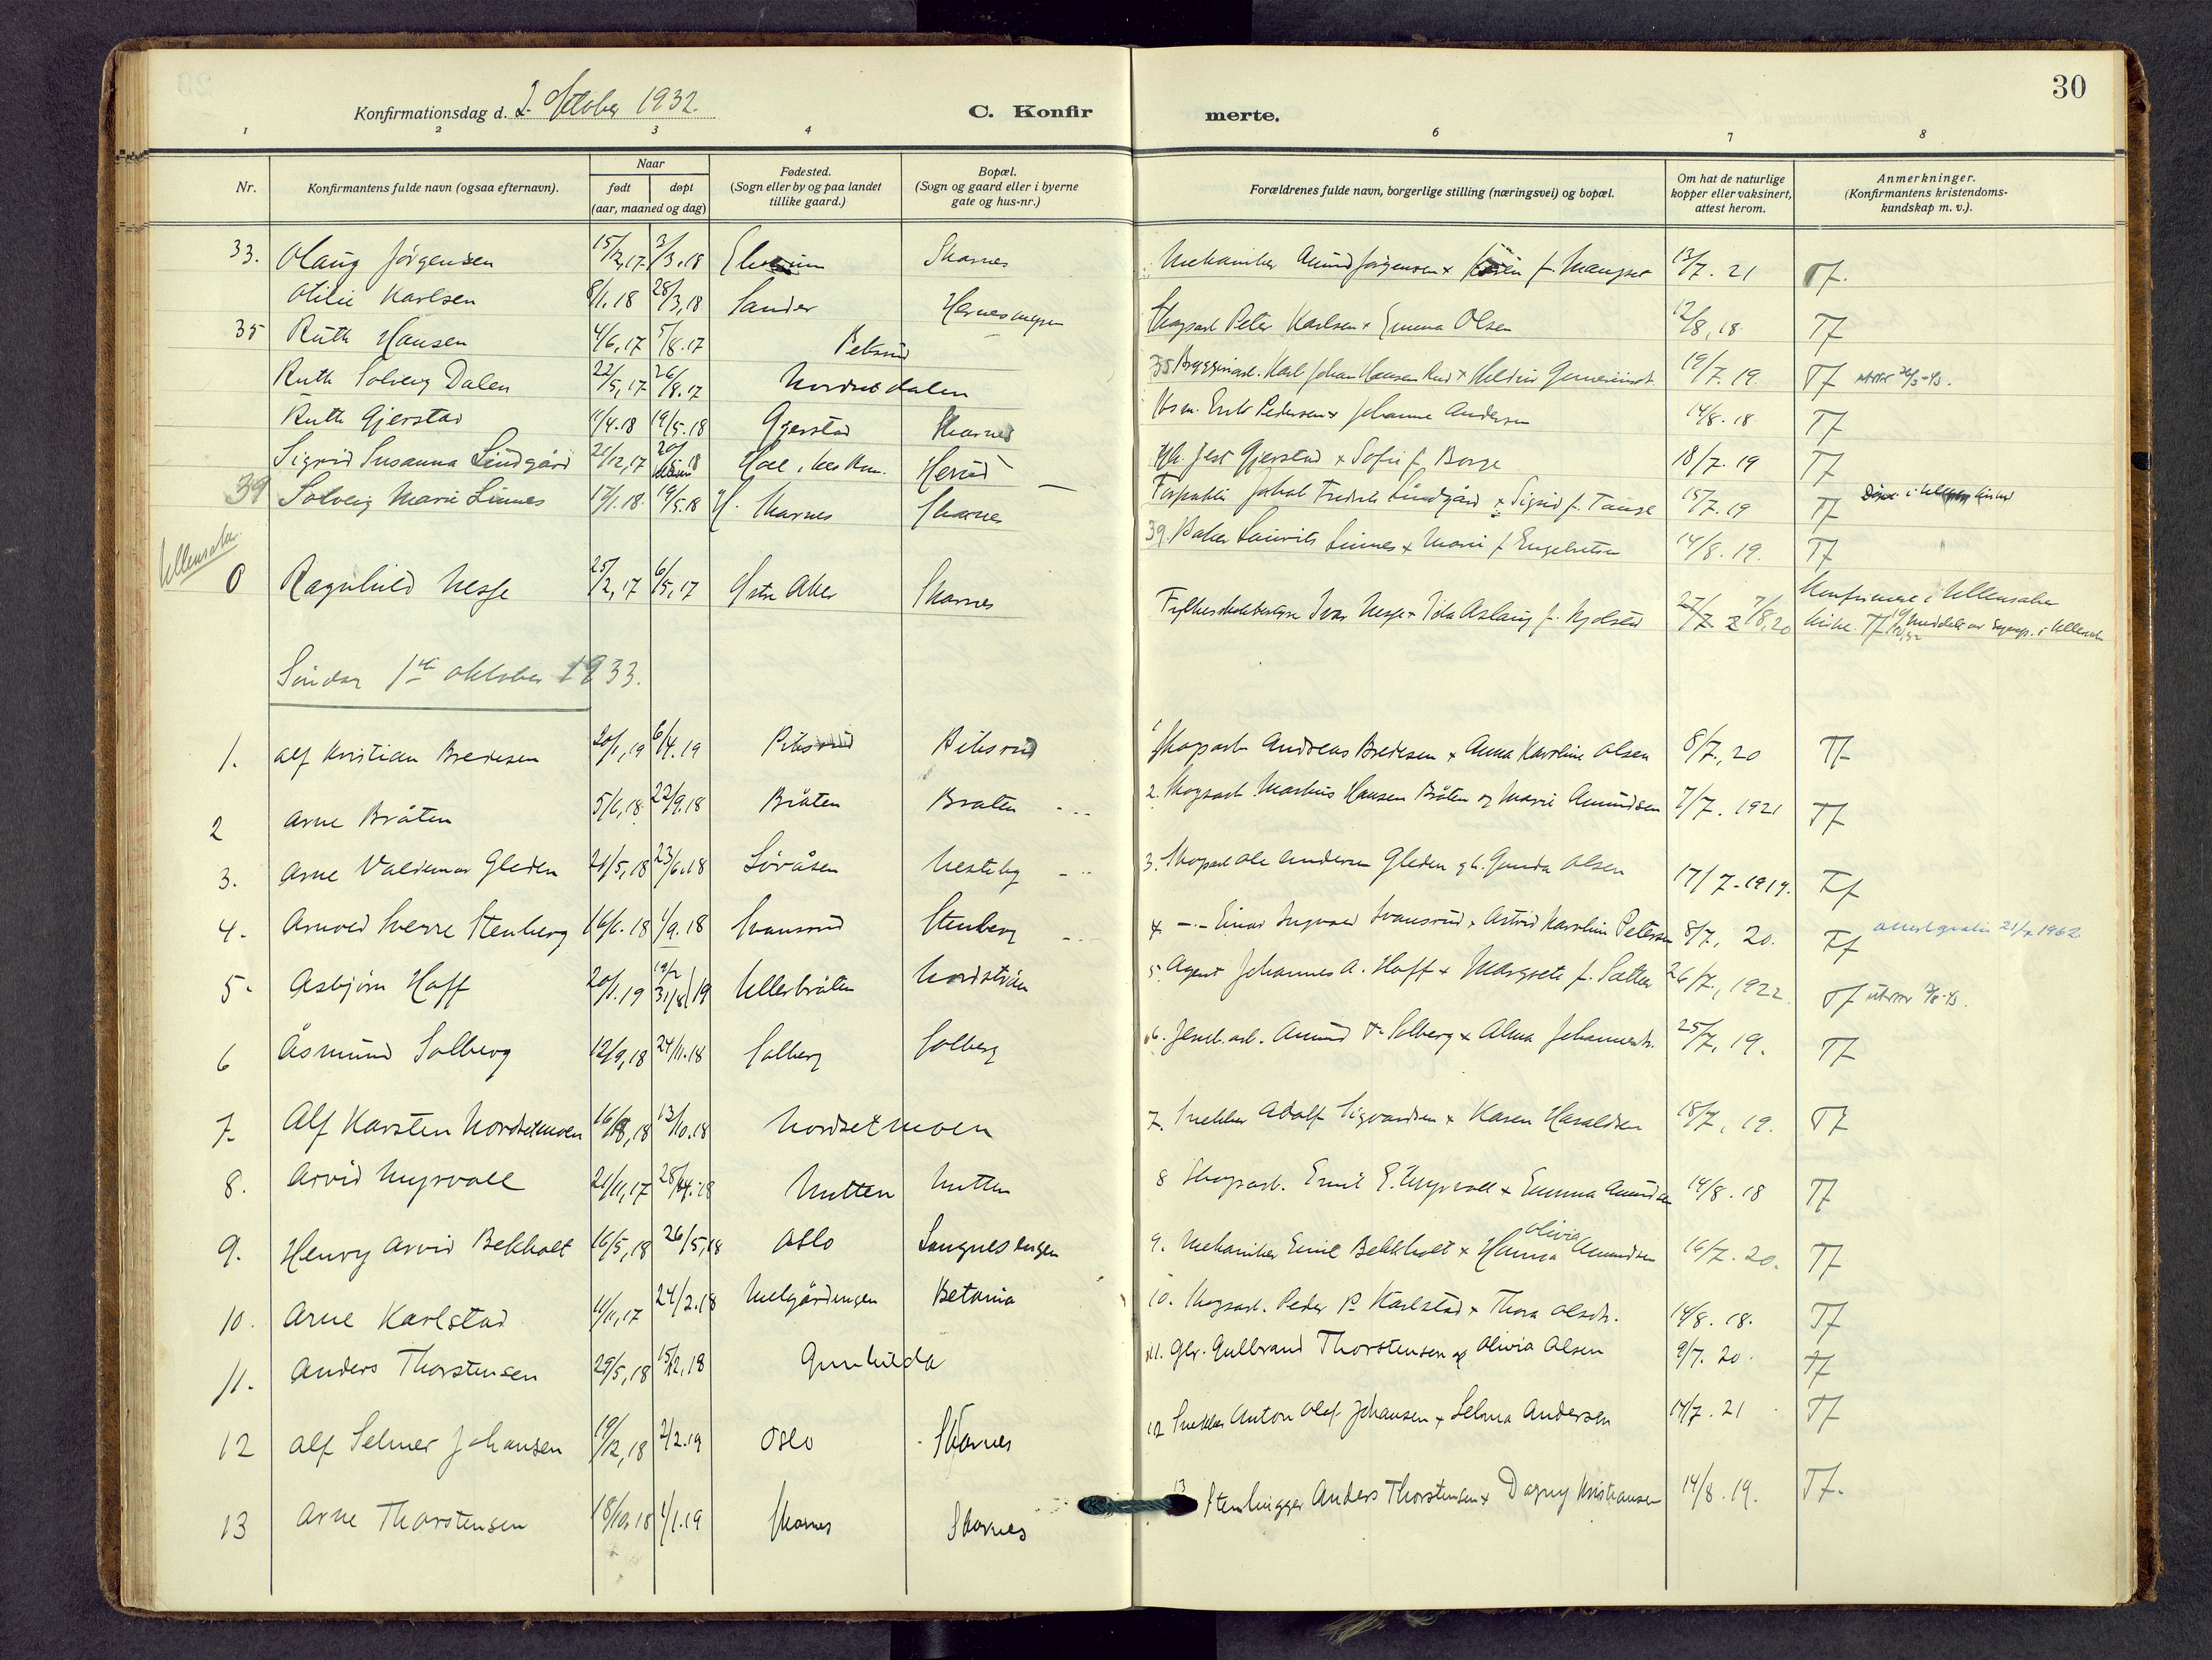 30
Konfirmationsdag d. 2. Oktober 1932.
C. Konfirmerte.
1 2 3 4 6 7 8
Nr.
Konfirmantens fulde navn (ogsaa efternavn).
Naar
født
døpt
(aar, maaned og dag)
Fødested.
(Sogn eller by og paa landet
tillike gaard.)
Bopæl.
(Sogn og gaard eller i byerne
gate og hus-nr.)
Forældrenes fulde navn, borgerlige stilling (næringsvei) og bopæl.
Om hat de naturlige
kopper eller vaksinert,
attest herom.
Anmerkninger.
(Konfirmantens kristendoms-
kundskap m. v.).
33. Olaug Jørgensen 15/12,17 3/3.18 Elverum Skarnes Mekaniker Amund Jørgensen x f. 13/7. 21 Tf.
Otilie Karlsen 8/1.18 28/3,18 Sander Skogsarb Peter Karlsen x Emma Olsen 12/8,18 Tf
35 Ruth Hansen 4/6,17 5/8.17 35 Karl Johan Hansen 19/7. 19. Tf
Ruth Solveig Dalen 22/5,17 26/8.17 Nordset dalen Pedersen x Johanne Andersen 14/8. 18 Tf
Ruth Gjerstad 11/4.18 19/5.18 Gjerstad Skarnes Gjerstad x Sofie f. Borge 18/7. 19 Tf
Sigrid Susanna Lindgård 21/12,17 Herud Jakob Fredrik Lindgård x Sigrid f. Tange 15/7. 19 Tf
39 Solveig Marie Linnes 17/1.18. 19/5.18 Skarnes Skarnes 39. Baker Laurits Linnes x Marie f. Engebretsen 14/8. 19. Tf
Ullensaker
0 Ragnhild Nesse 25/2,17 6/5,17 Østre Aker Skarnes Ivar Nesse x Ida Aslaug f. 7/8,20 Konfirmert i Ullensaker
kirke. Tf
Søndag 1ste oktober 1933.
1. Alf Kristian Bredesen 20/1,19 6/4.19 Pilsrud Pilsrud 1 Skogsarb Andreas Bredesen x Anna Karoline Olsen 8/7., 20 Tf
2 Arne Bråten 5/6,18. 22/9.18 Bråten Braten 2. Skogsarb Markus Hansen Bråten og Marie Amundsen 7/7. 1921 Tf
3. Arne Valdemar Gleden 21/5,18 23/6.18 Søråsen Nesteby 3. Skogsarb Ole Andersen Gleden og h. Gunda Olsen 17/7-1919. Tf
4. Arnold Sverre Stenberg 16/6.18 1/9.18 Svansrud Stenberg 4. -.- Einar Ingvald Svansrud x Astrid Karoline Petersen 8/7, 20. Tf
5. Asbjørn Hoff 20/1.19 Ullerbråten Nordstrøm 5. Agent Johannes A. Hoff x Margrete f. Sæther 26/7., 1922. Tf
6 Åsmund Solberg 12/9,18 24/11.18 Solberg Solberg 6. Jernb.arb. Amund Solberg x Alma Johannesdtr. 25/7, 19. Tf
7. Alf Karsten Nordsetmoen 16/8,18 13/10.18 Nordsetmoen 7. Snekker Adolf Sigvardsen x Karen Haraldsen 18/7, 19. Tf
8. Arvid Myrvoll 21/11,17 28/4.18 Mutten Mutten 8 Skogsarb. Emil E. Myrvoll x Emma Amundsen 14/8. 18 Tf
9. Henry Arvid Bekholt 16/5,18 26/5,18 Oslo Sangnesengen 9. Mekaniker Emil Bekkholt x Hanna Olivia Amundsen 16/7. 20. Tf
10. Arne Karlstad 11/11,17 24/2.18 Melgårdengen Betania 10. Skogsarb. Peder P. Karlstad x Thora Olsdtr. 14/8. 18. Tf
11. Anders Thorstensen 29/5,18 15/12,18 Gunhilda 11. Gbr. Gulbrand Thorstensen og Olivia Olsen 9/7. 20. Tf
12 Alf Selmer Johansen 19/12,18 2/2.19 Oslo Skarnes 12 Snekker Anton Olaf Johansen x Selma Andersen 14/7. 21 Tf
13 Arne Thorstensen 18/10.18 1/1.19 Skarnes Skarnes 13 Stenhugger Anders Thorstensen x Dagny Kristiansen 14/8. 19. Tf.